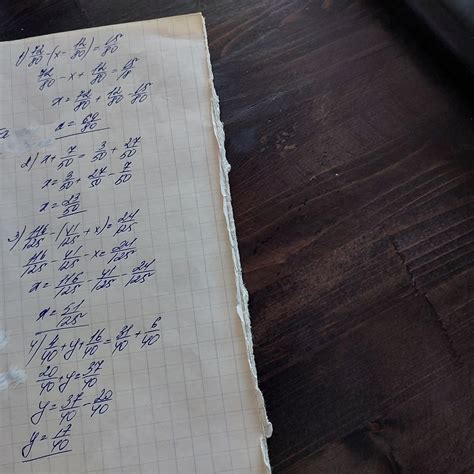 1) 72/80 - (x - 12/80) = 15/80
72/80 - x + 12/80 =
x = 72/80 + 12/80 - 15/80
x = 69/80
2) x + 7/50 = 3/50 + 27/50
x = 3/50 + 27/50 - 7/50
x = 23/50
3) 116/125 - (41/125 + x) = 24/125
116/125 - 41/125 - x = 24/125
x = 116/125 - 41/125 - 24/125
x = 51/125
4) 4/40 + y + 16/40 = 31/40 + 6/40
20/40 + y = 37/40
y = 37/40 - 20/40
y = 17/40